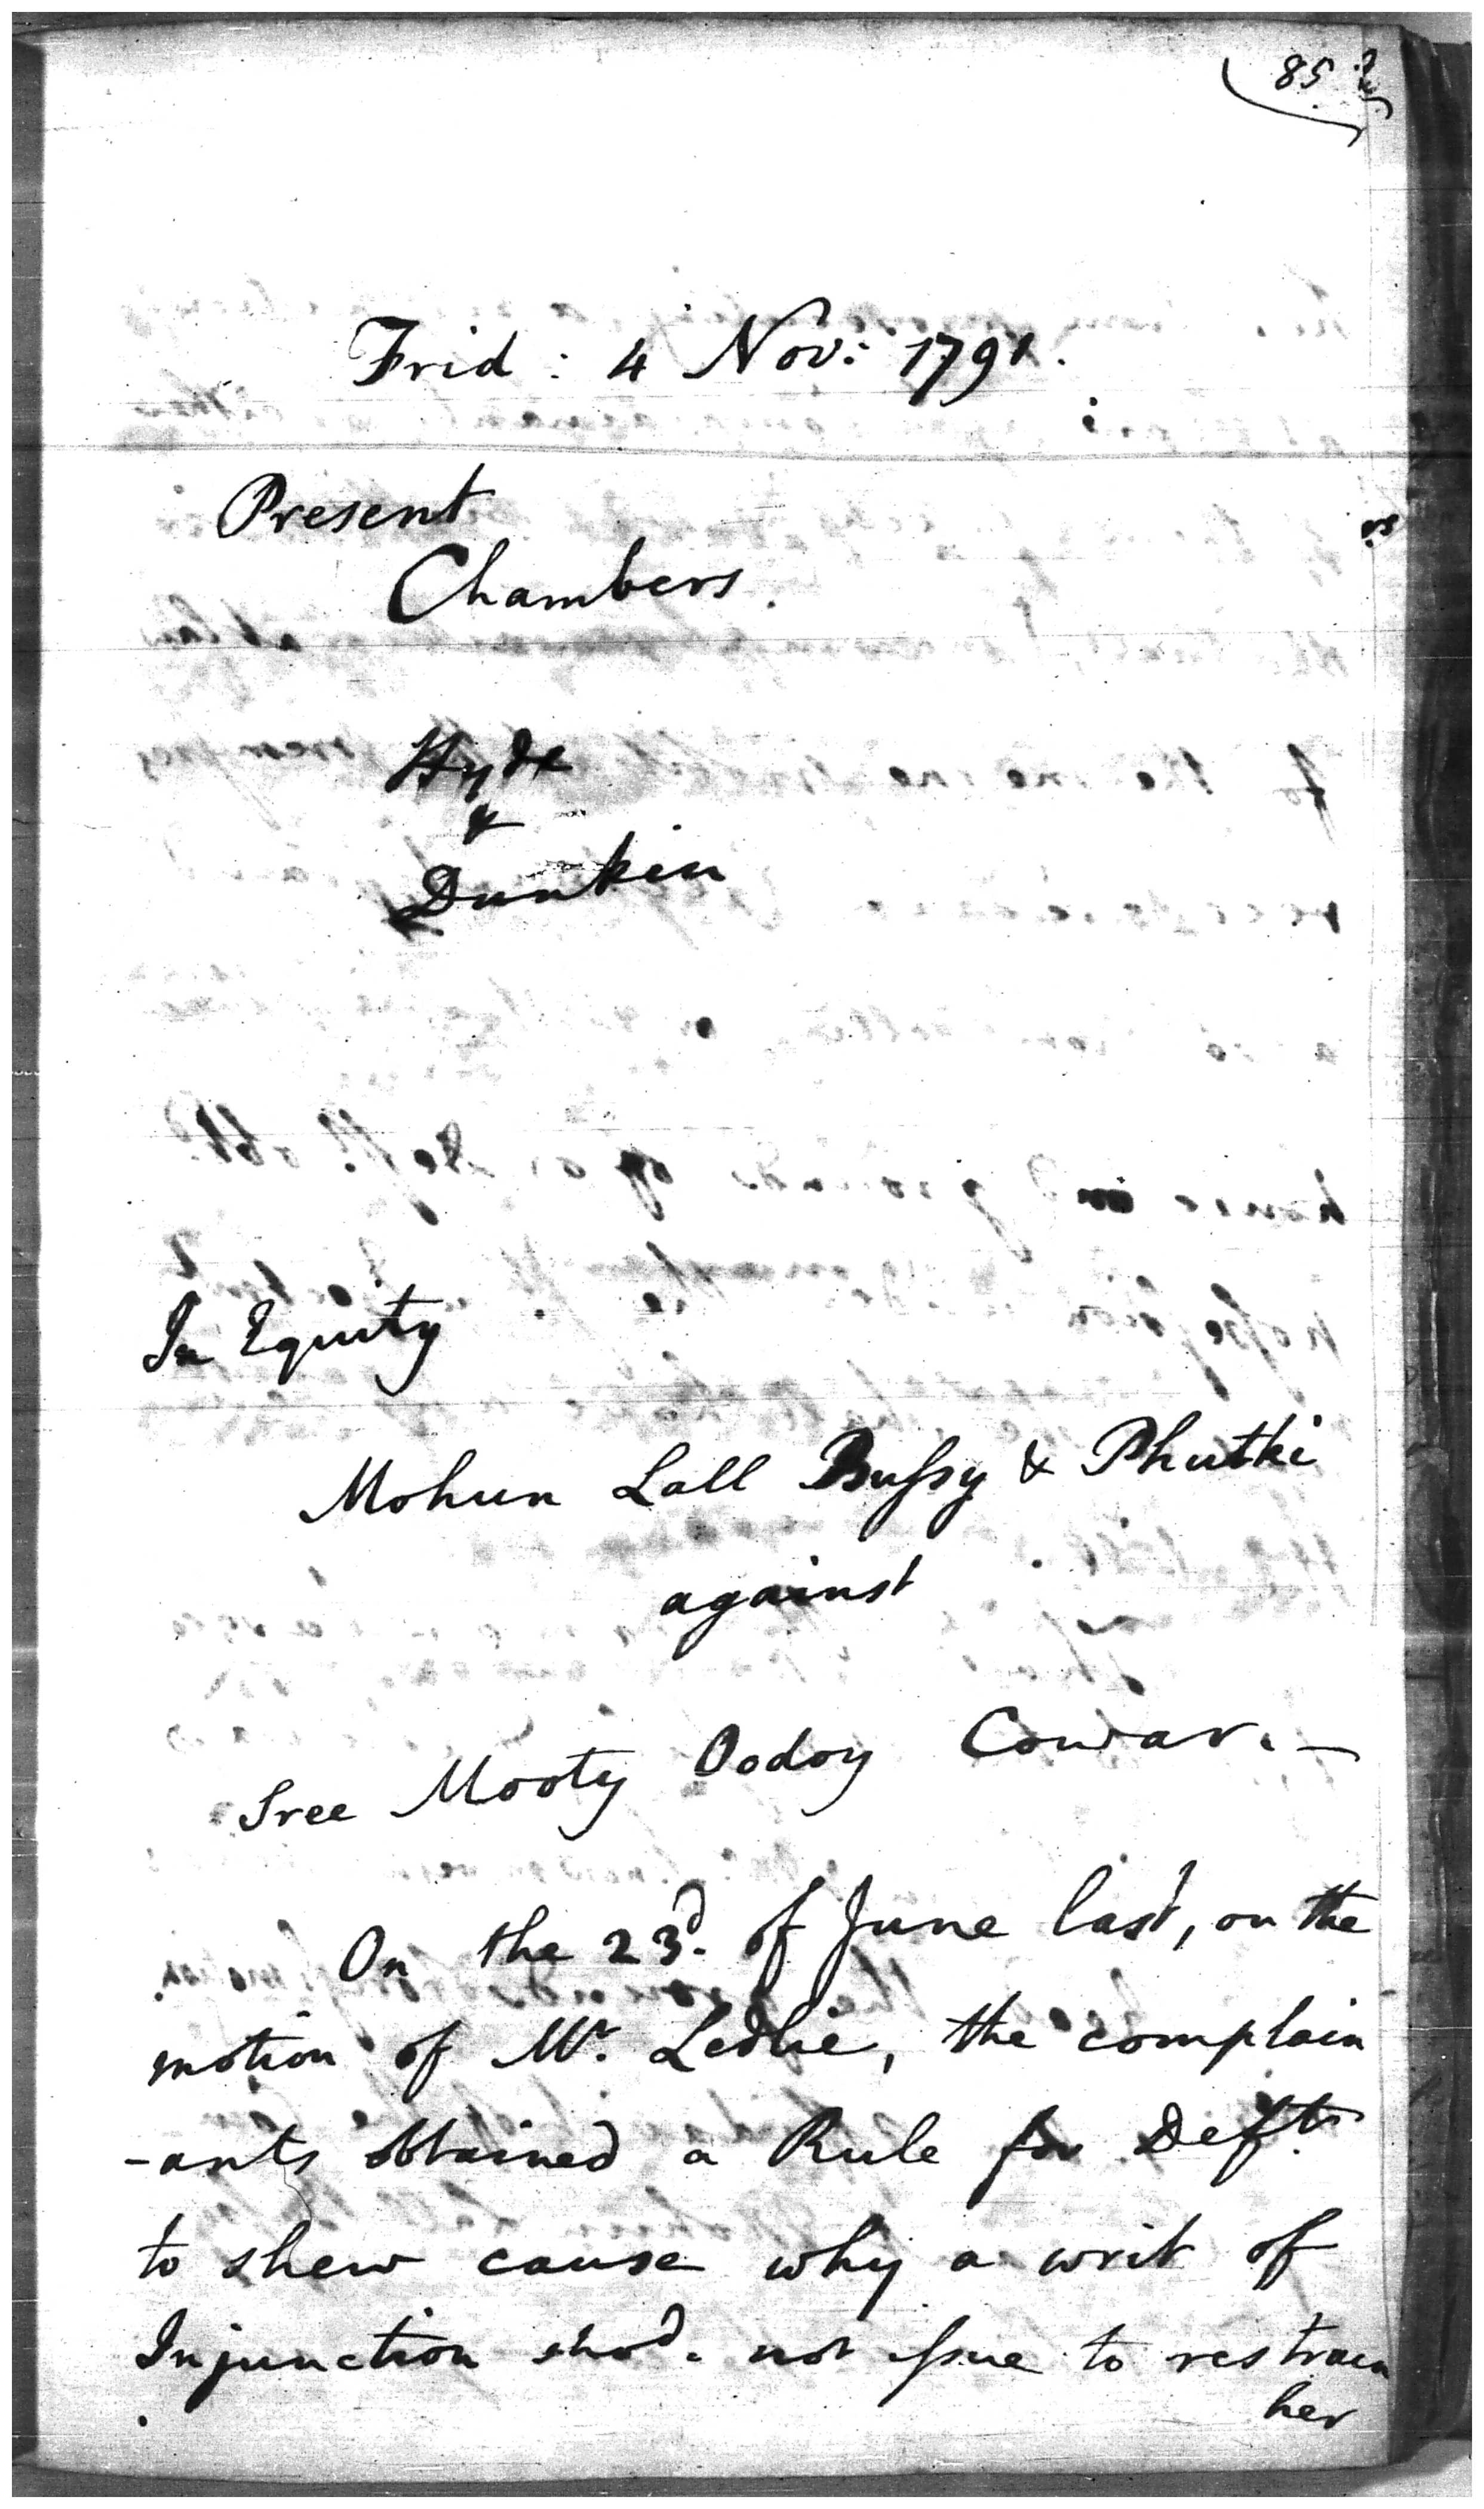 85
Frid: 4 Nov: 1791.
Present
Chambers.
Hyde
&
Dunkin
In Equity
Mohun Lall Bussy & Phutki
against
Sree Mooty Oodoy Cowar. —
On the 23d. of June last, on the
motion of Mr. Ledlie, the complain
-ants obtained a Rule for Deft.
to shew cause why a writ of
Injunction shod. not issue to restrain
her